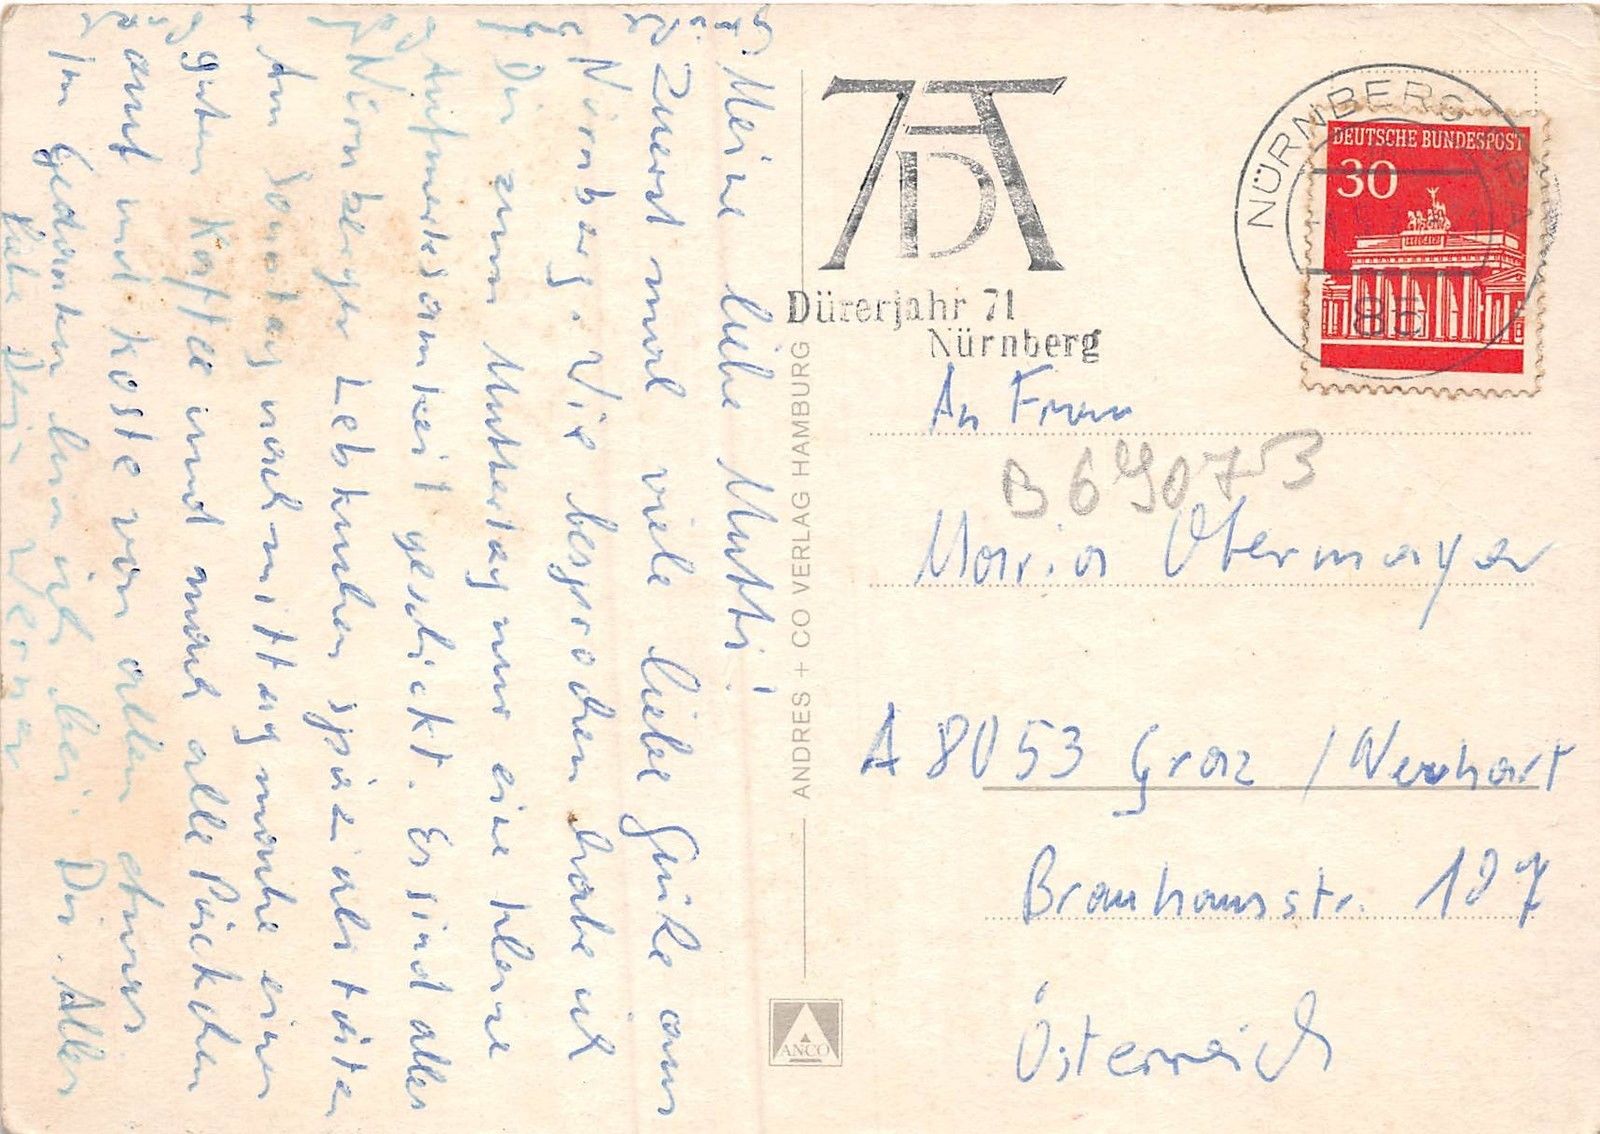 Meine liebe Mutti!
Zuerst mal viele liebe Grüße aus
Nürnberg. Wie besprochen habe ich
Dir zum Muttertag nur eine kleine
Aufmerksamkeit geschickt. Es sind alles
Nürnberger Lebkuchen spezialitäten
Am Sonntag nachmittag mache einen
guten Kaffee und mach alle Päckchen
auf und koste von allem etwas
Im Gedanken bin ich bei Dir. Alles
Liebe Dein Werner
AD
Dürerjahr 71
Nürnberg
NÜRNBERG
85
DEUTSCHE BUNDESPOST
30
An Frau
B 69073
Maria Obermayer
A 8053 Graz / Neuhart
Brauhausstr. 107
Österreich
ANDRES + CO VERLAG HAMBURG
ANCO